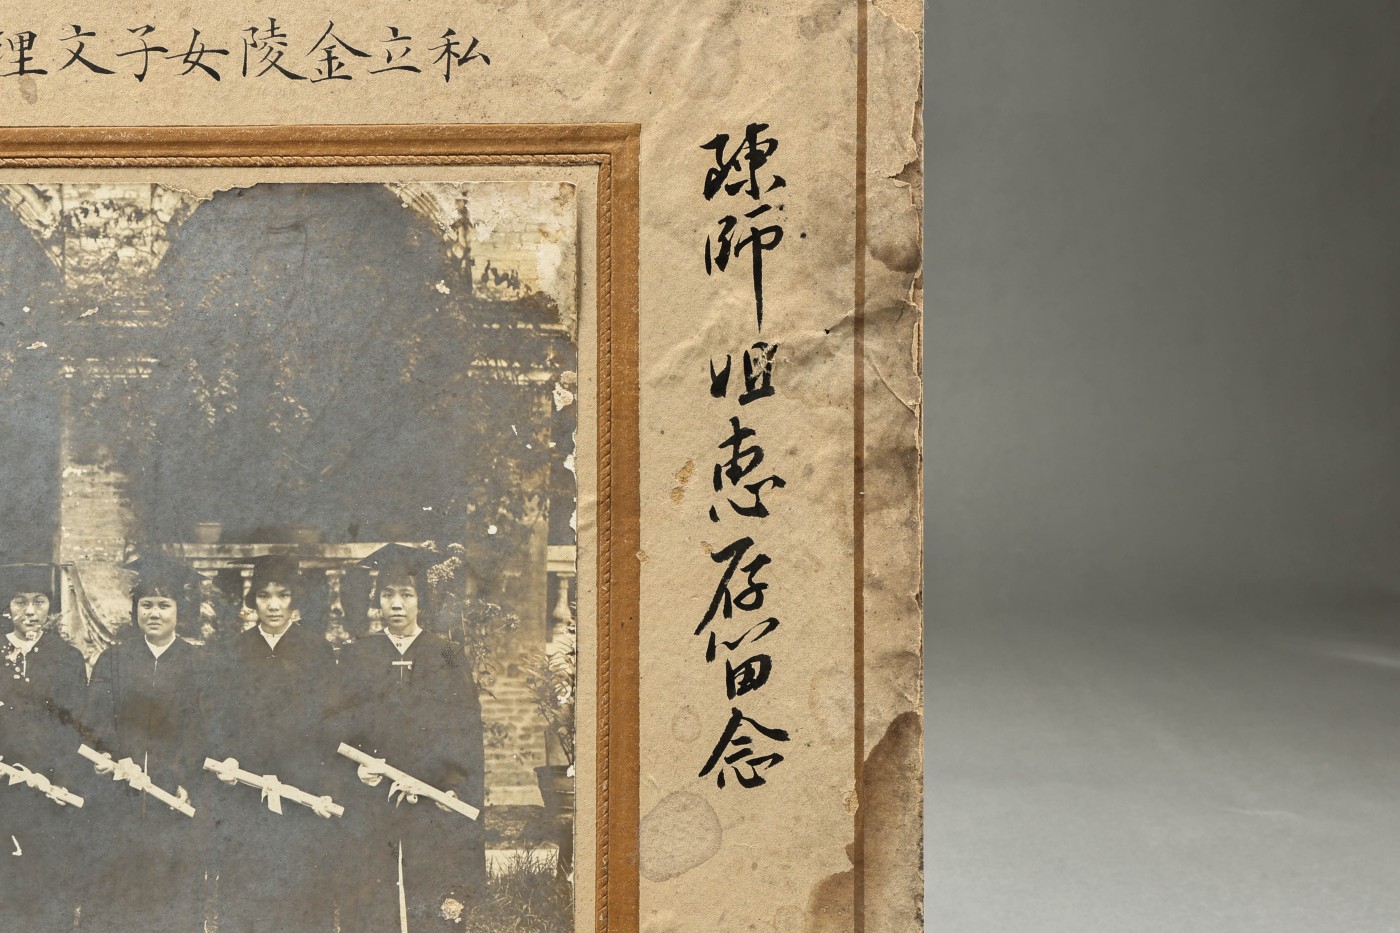 私立金陵女子文理
陳師姐惠存留念